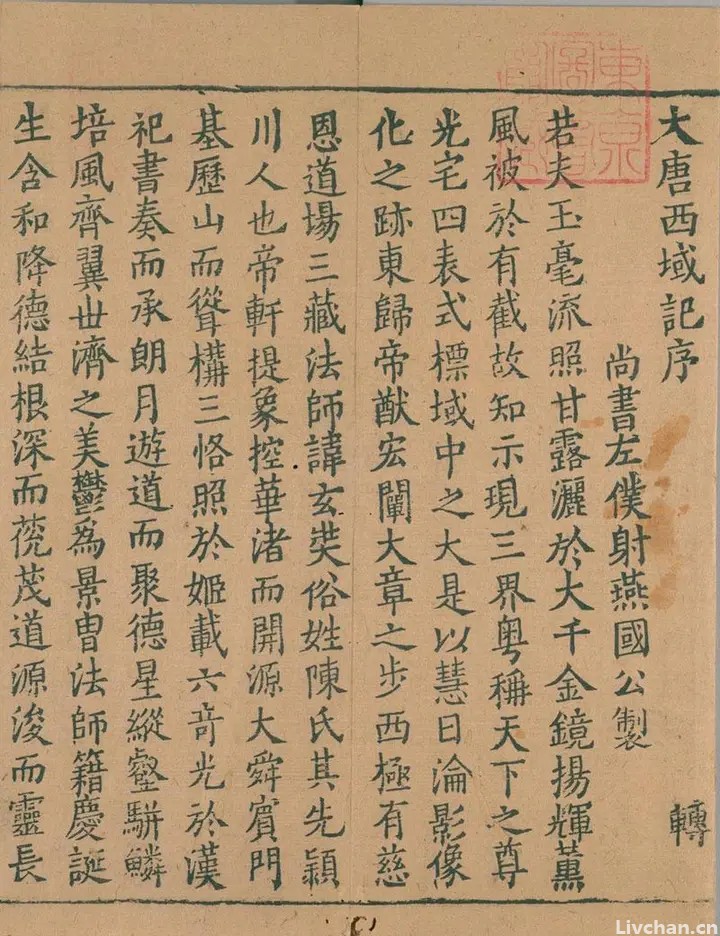 大唐西域記序 轉
尚書左僕射燕國公製
若夫玉毫流照甘露灑於大千金鏡揚輝薰
風被於有截故知示現三界粤稱天下之尊
光宅四表式標域中之大是以慧日淪影像
化之跡東歸帝猷宏闡大章之步西極有慈
恩道場三藏法師諱玄奘俗姓陳氏其先頴
川人也帝軒提象控華渚而開源大舜賓門
基歷山而聳構三恪照於姬載六奇光於漢
祀書奏而承朗月遊道而聚德星縱壑駢鱗
培風齊翼世濟之美鬱為景胄法師籍慶誕
生含和降德結根深而茂道源浚而靈長
東京
Livchan.cn